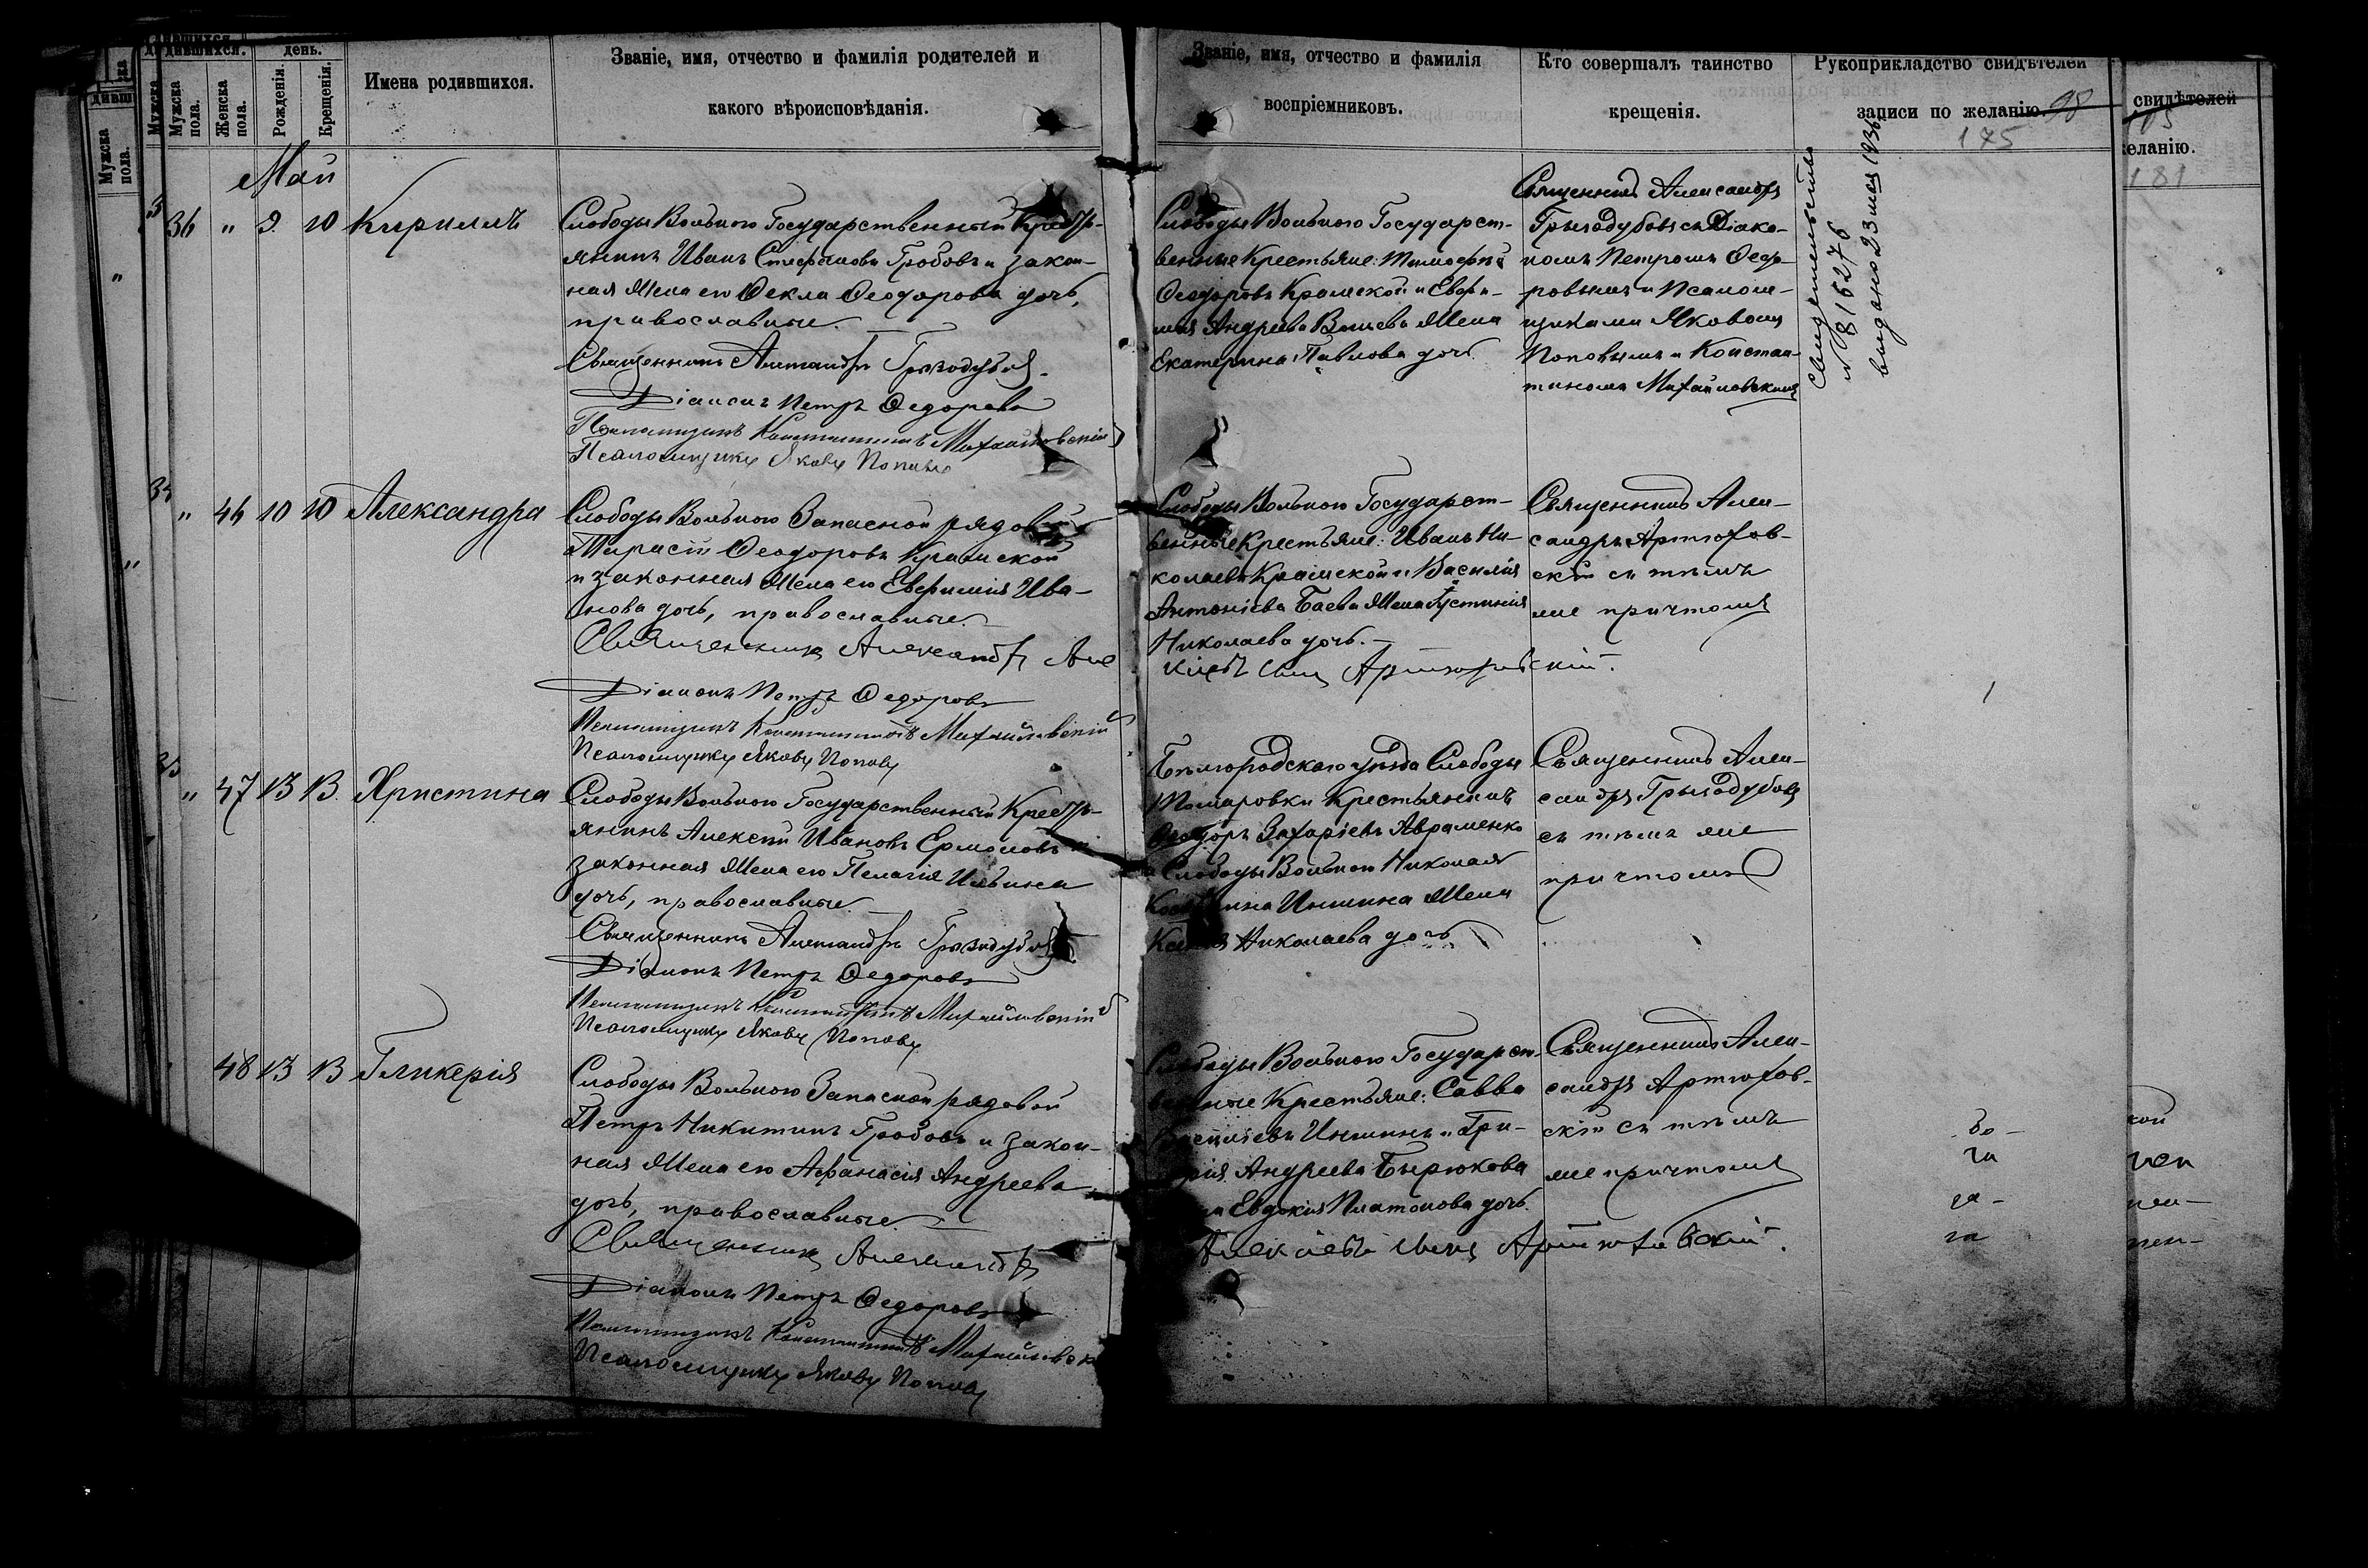 дившихся.
день.
Мужска
пола.
Женска
пола.
Рожденія.
Крещенія.
Имена родившихся.
Званіе, имя, отчество и фамилія родителей и
какого вѣроисповѣданія.
Званіе, имя, отчество и фамилія
воспріемниковъ.
Кто совершалъ таинство
крещенія.
Рукоприкладство свидѣтелей
записи по желанію.
98
175
свидѣтелей
еланію.
181
Май
36 " 9 10 Кириллъ
Слободы Вольного Государственный Кресть-
янинъ Иванъ Стефановъ Гробовъ и закон-
ная жена его Ѳекла Ѳеодорова дочь,
православные.
Священникъ Александръ Грызодубовъ.
Діаконъ Петръ Ѳедоровъ
Псаломщикъ Константинъ Михайловскій
Псаломщикъ Яковъ Поповъ
Слободы Вольного Государст-
венные Крестьяне: Тимофей
Ѳеодоровъ Крамской и Евфи-
мія Андреева жена
Екатерина Павлова дочь.
Священникъ Александръ
Грызодубовъ съ Діако-
номъ Петромъ Ѳедо-
ровымъ и Псалом-
щиками Яковомъ
Поповымъ и Констан-
тиномъ Михайловскимъ
Свидетельство
№ 815276
выдано 23 мая 1936
" 46 10 10 Александра
Слободы Вольного Запасной рядовой
Тарасій Ѳеодоровъ Крамской
и законная жена его Евфимія Ива-
нова дочь, православные.
Священникъ Александръ Але
Діаконъ Петръ Ѳедоровъ
Псаломщикъ Константинъ Михайловскій
Псаломщикъ Яковъ Поповъ
Слободы Вольного Государст-
венные Крестьяне: Иванъ Ни-
колаевъ Крамской и Василія
Антоніева Баева жена Іустинія
Николаева дочь.
ксѣевъ сынъ Артюховскій.
Священникъ Алек-
сандръ Артюхов-
скій съ тѣмъ
же причтомъ
" 47 13 13 Христина
Слободы Вольного Государственный Кресть-
янинъ Алексѣй Ивановъ Ермоловъ и
законная жена его Пелагія Ильина
дочь, православные.
Священникъ Александръ Грызодубовъ
Діаконъ Петръ Ѳедоровъ
Псаломщикъ Константинъ Михайловскій
Псаломщикъ Яковъ Поповъ
Бѣлгородскаго уѣзда Слободы
Томаровки Крестьянинъ
Ѳеодоръ Захаріевъ Авраменко
и Слободы Вольной Николая
Иншина жена
Николаева дочь
Священникъ Алек-
сандръ Грызодубовъ
съ тѣмъ же
причтомъ
48 13 13 Гликерія
Слободы Вольного Запасной рядовой
Петръ Никитинъ Гробовъ и закон-
ная жена его Афанасія Андреева
дочь, православные.
Священникъ Александръ
Діаконъ Петръ Ѳедоровъ
Псаломщикъ Константинъ Михайловск
Псаломщикъ Яковъ Поповъ
Слободы Вольного Государст-
венные Крестьяне: Савва
Василіевъ Иншинъ и Гри-
горія Андреева Бирюкова
жена Евдокія Платонова дочь.
Алексѣевъ сынъ Артюховскій.
Священникъ Алек-
сандръ Артюхов-
скій съ тѣмъ
же причтомъ